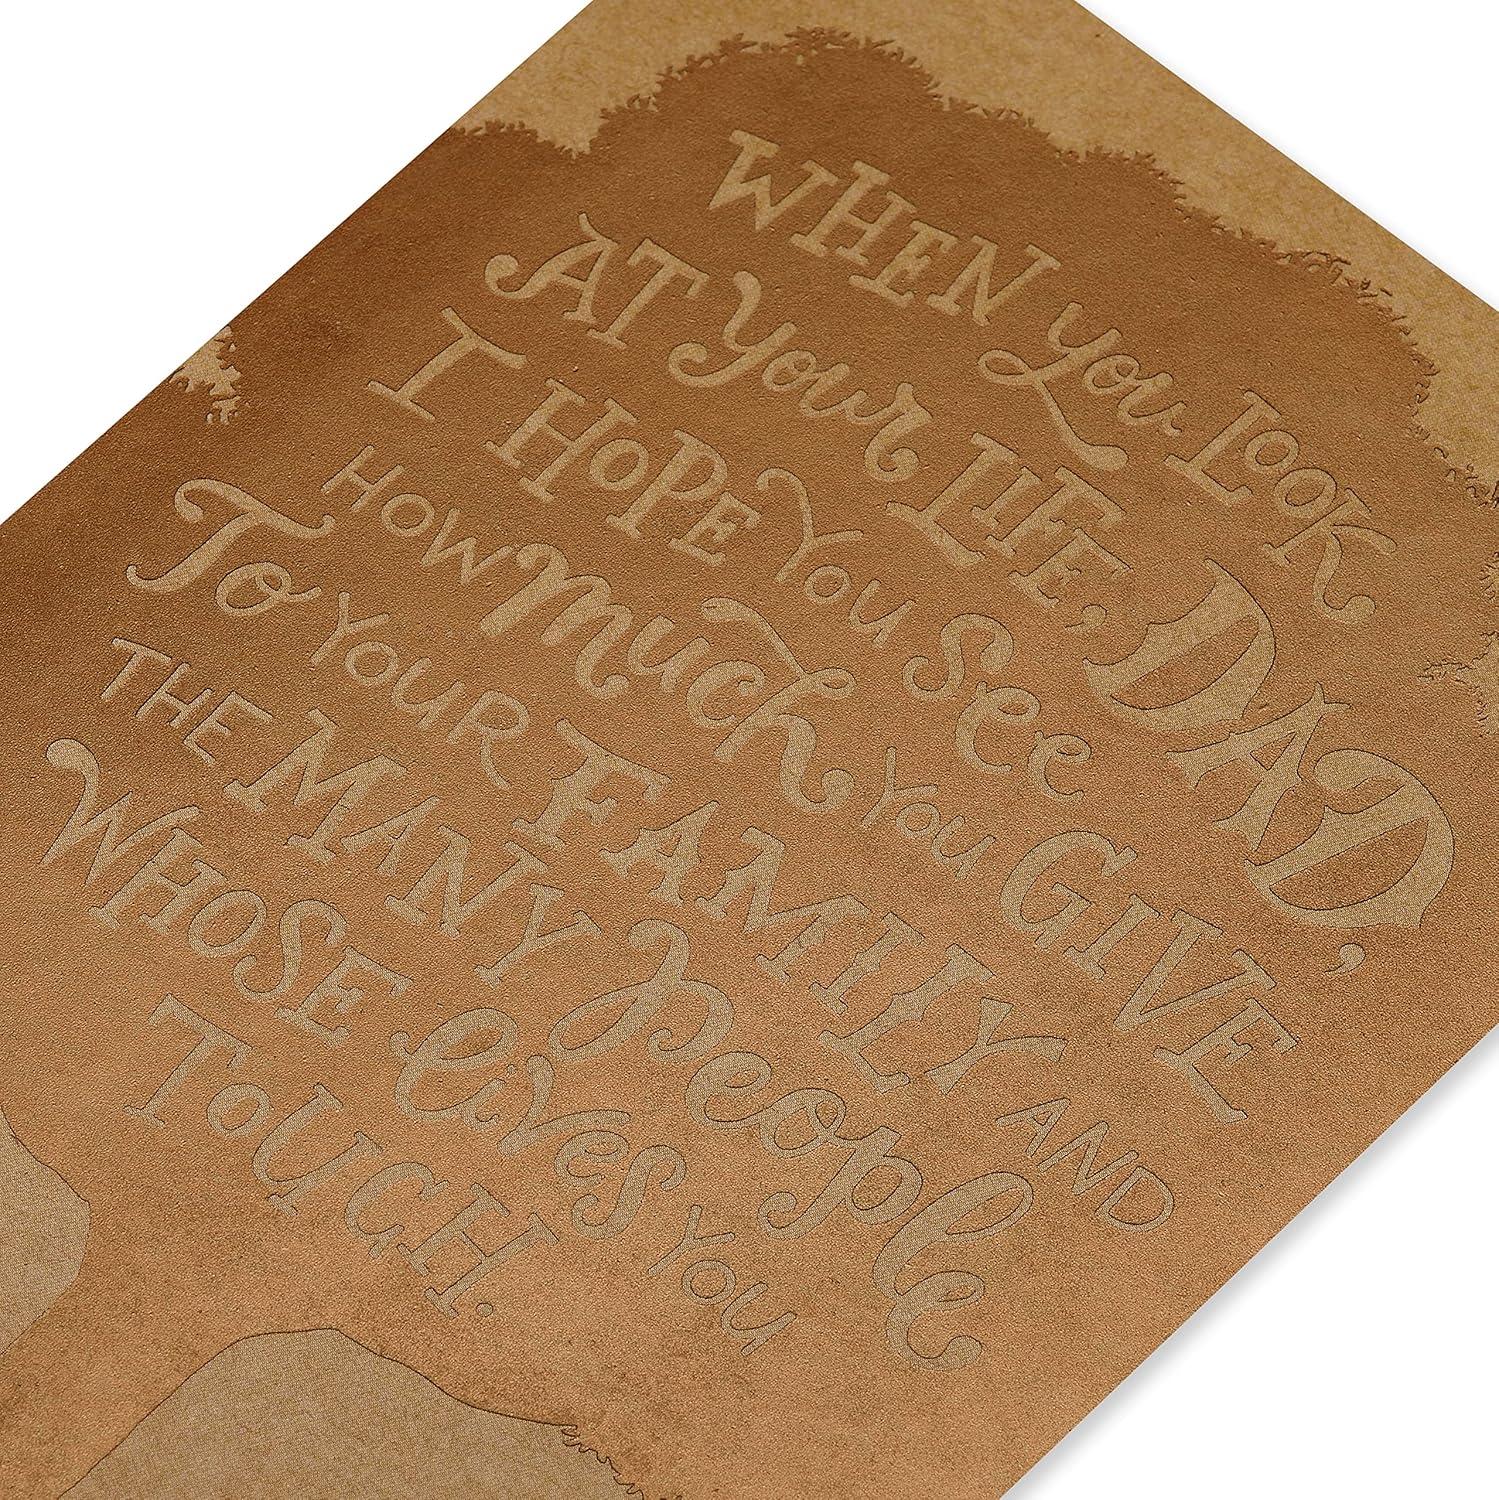 WHEN you LOOK
AT your LIFE, DAD,
I HOPE YOU see
HOW much YOU GIVE
To YOUR FAMILY AND
THE MANY people
WHOSE lives YOU
TOUCH.